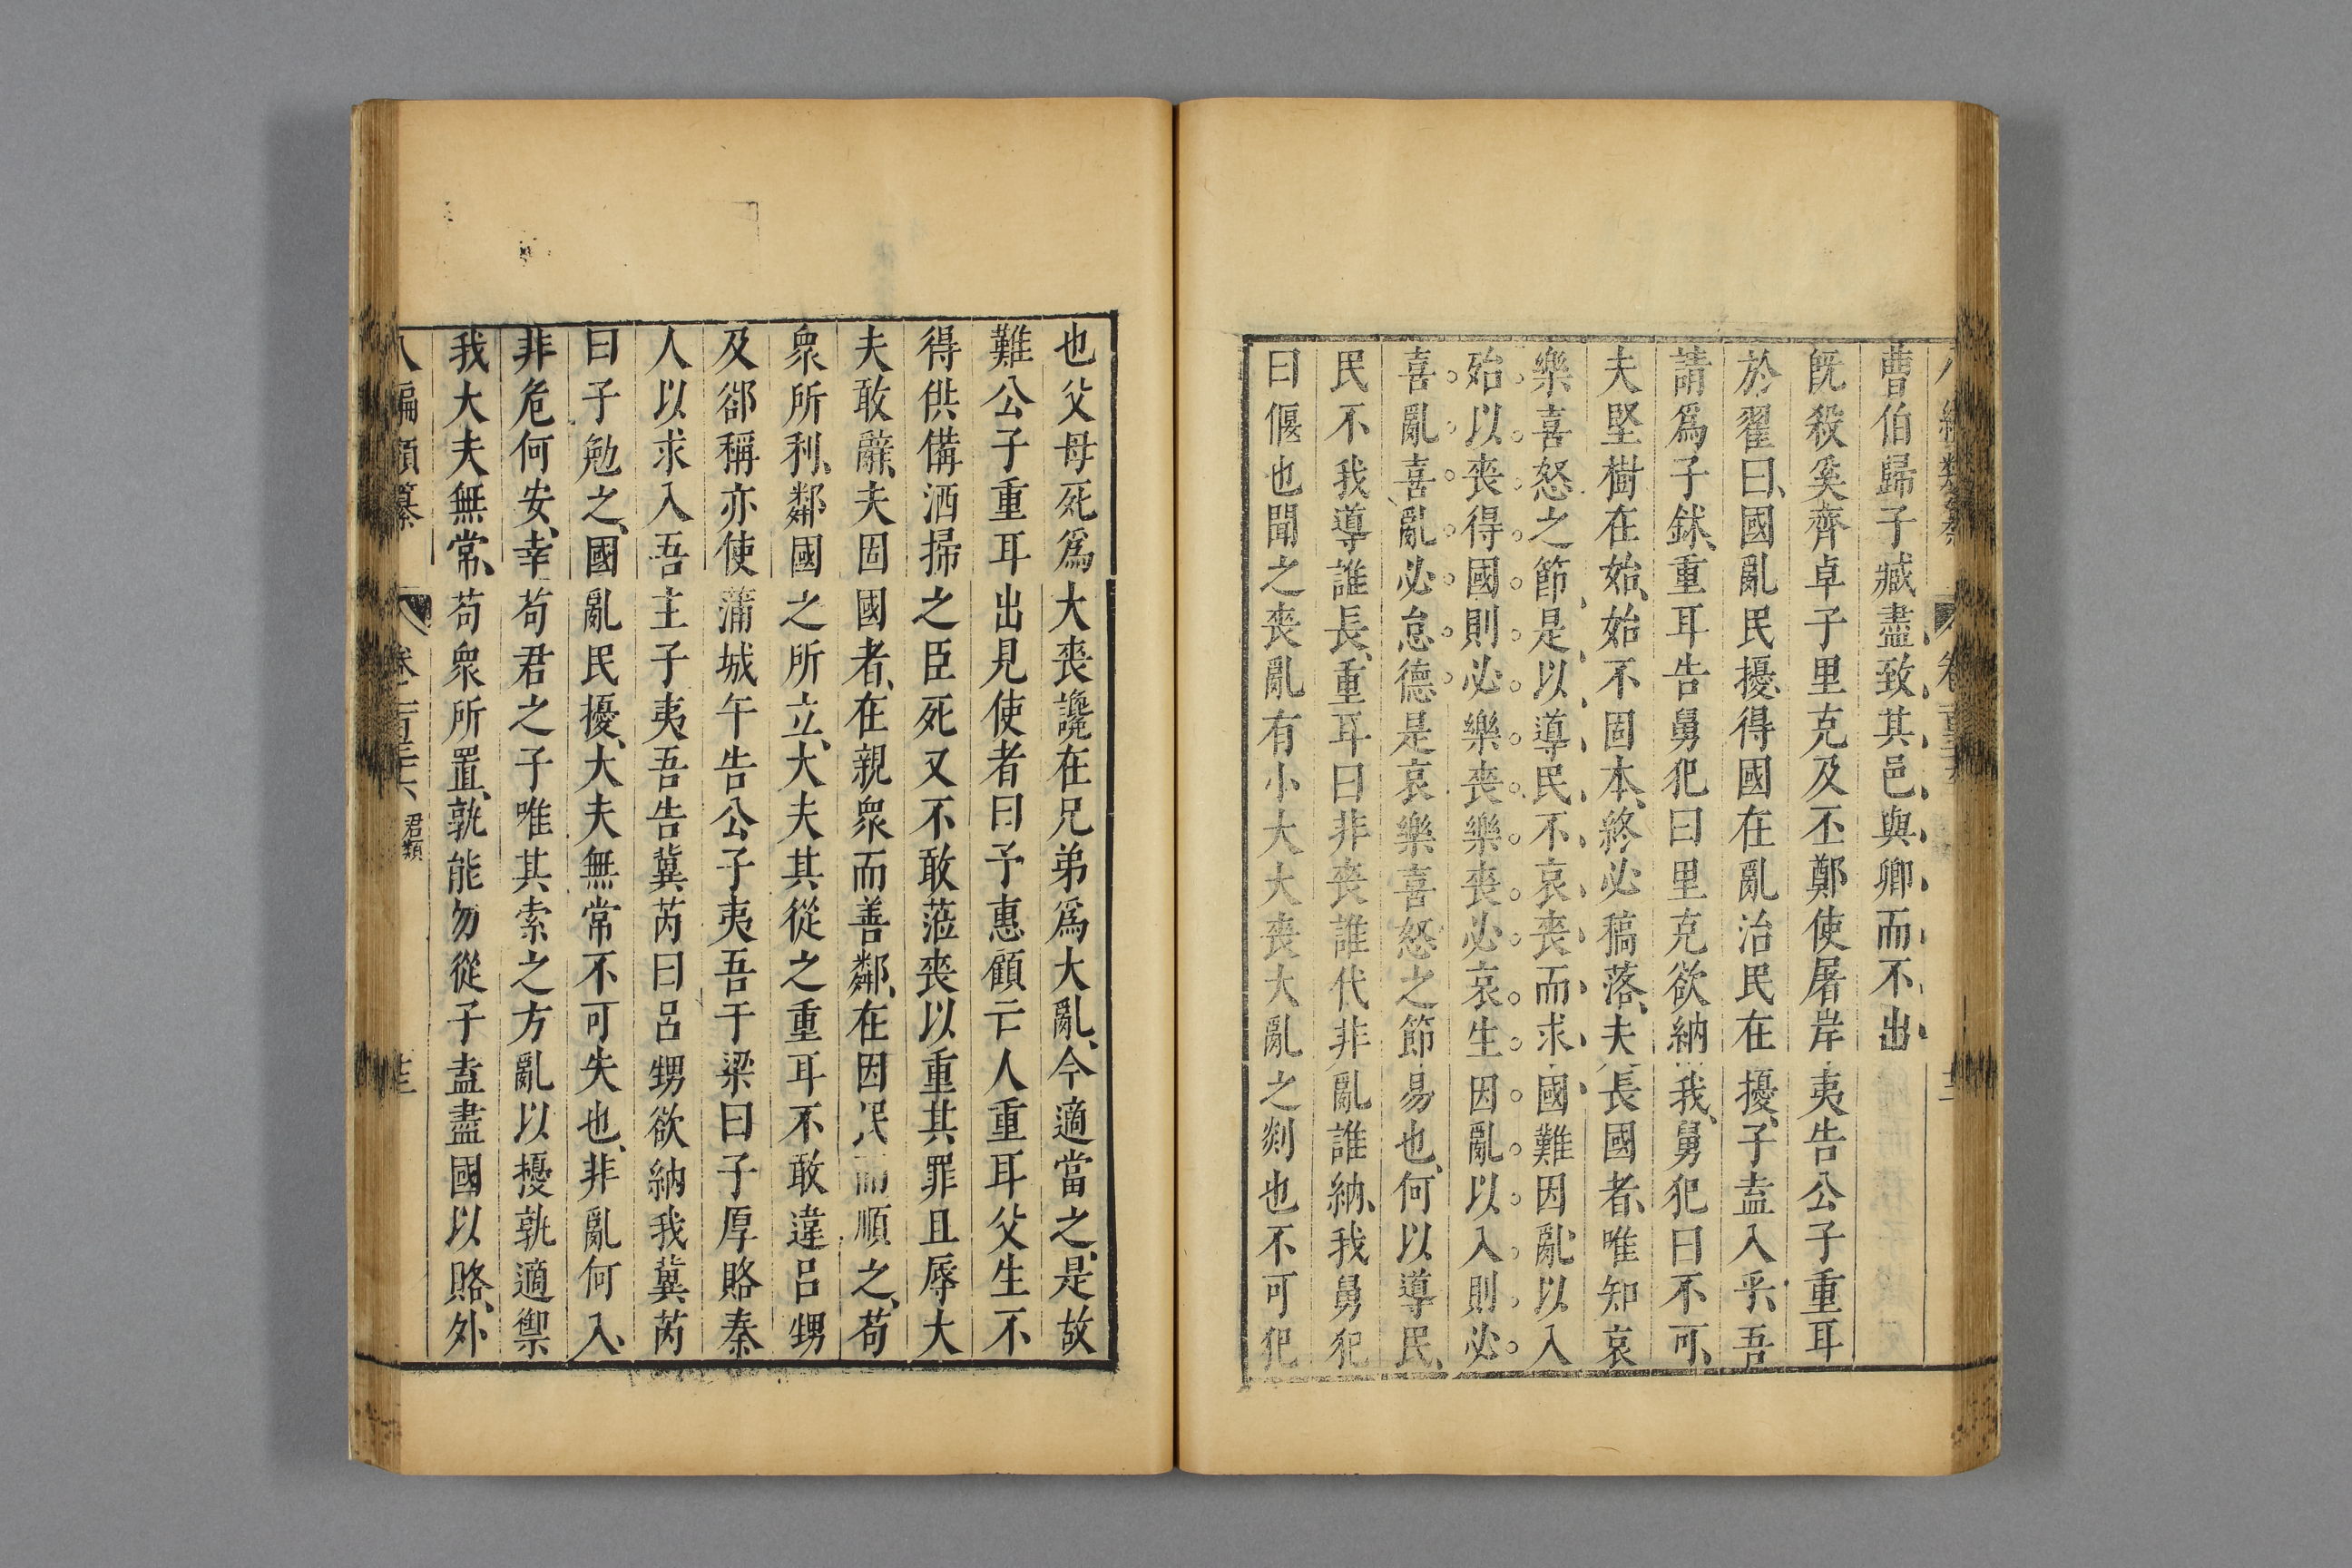 曹伯歸子臧盡致其邑與卿而不出
旣殺奚齊卓子里克及丕鄭使屠岸夷告公子重耳
於翟曰、國亂民擾、得國在亂治民在擾、子盍入乎、吾
請爲子鉥、重耳告舅犯曰里克欲納我、舅犯曰不可、
夫堅樹在始、始不固本、終必稿落、夫長國者、唯知哀
樂喜怒之節是以導民不哀喪而求國難因亂以入
殆以喪得國則必樂喪樂喪必哀生因亂以入則必
喜亂喜亂必怠德是哀樂喜怒之節易也、何以導民、
民不我導誰長、重耳曰非喪誰代非亂誰納、我舅犯
曰偃也聞之喪亂有小大大喪大亂之剡也不可犯
也父母死爲大喪讒在兄弟爲大亂、今適當之、是故
難公子重耳出見使者曰予惠顧亡人重耳父生不
得供備洒掃之臣死又不敢蒞喪以重其罪且辱大
夫敢辭、夫固國者、在親衆而善鄰、在因民而順之、苟
衆所利、鄰國之所立、大夫其從之重耳不敢違呂甥
及郤稱亦使蒲城午告公子夷吾于梁曰子厚賂秦
人以求入吾主子夷吾告冀芮曰呂甥欲納我冀芮
曰子勉之、國亂民擾、大夫無常不可失也、非亂何入、
非危何安、幸苟君之子唯其索之方亂以擾孰適禦
我大夫無常、苟衆所置、孰能勿從子盍盡國以賂、外
八編類纂 卷二百三十六 君類